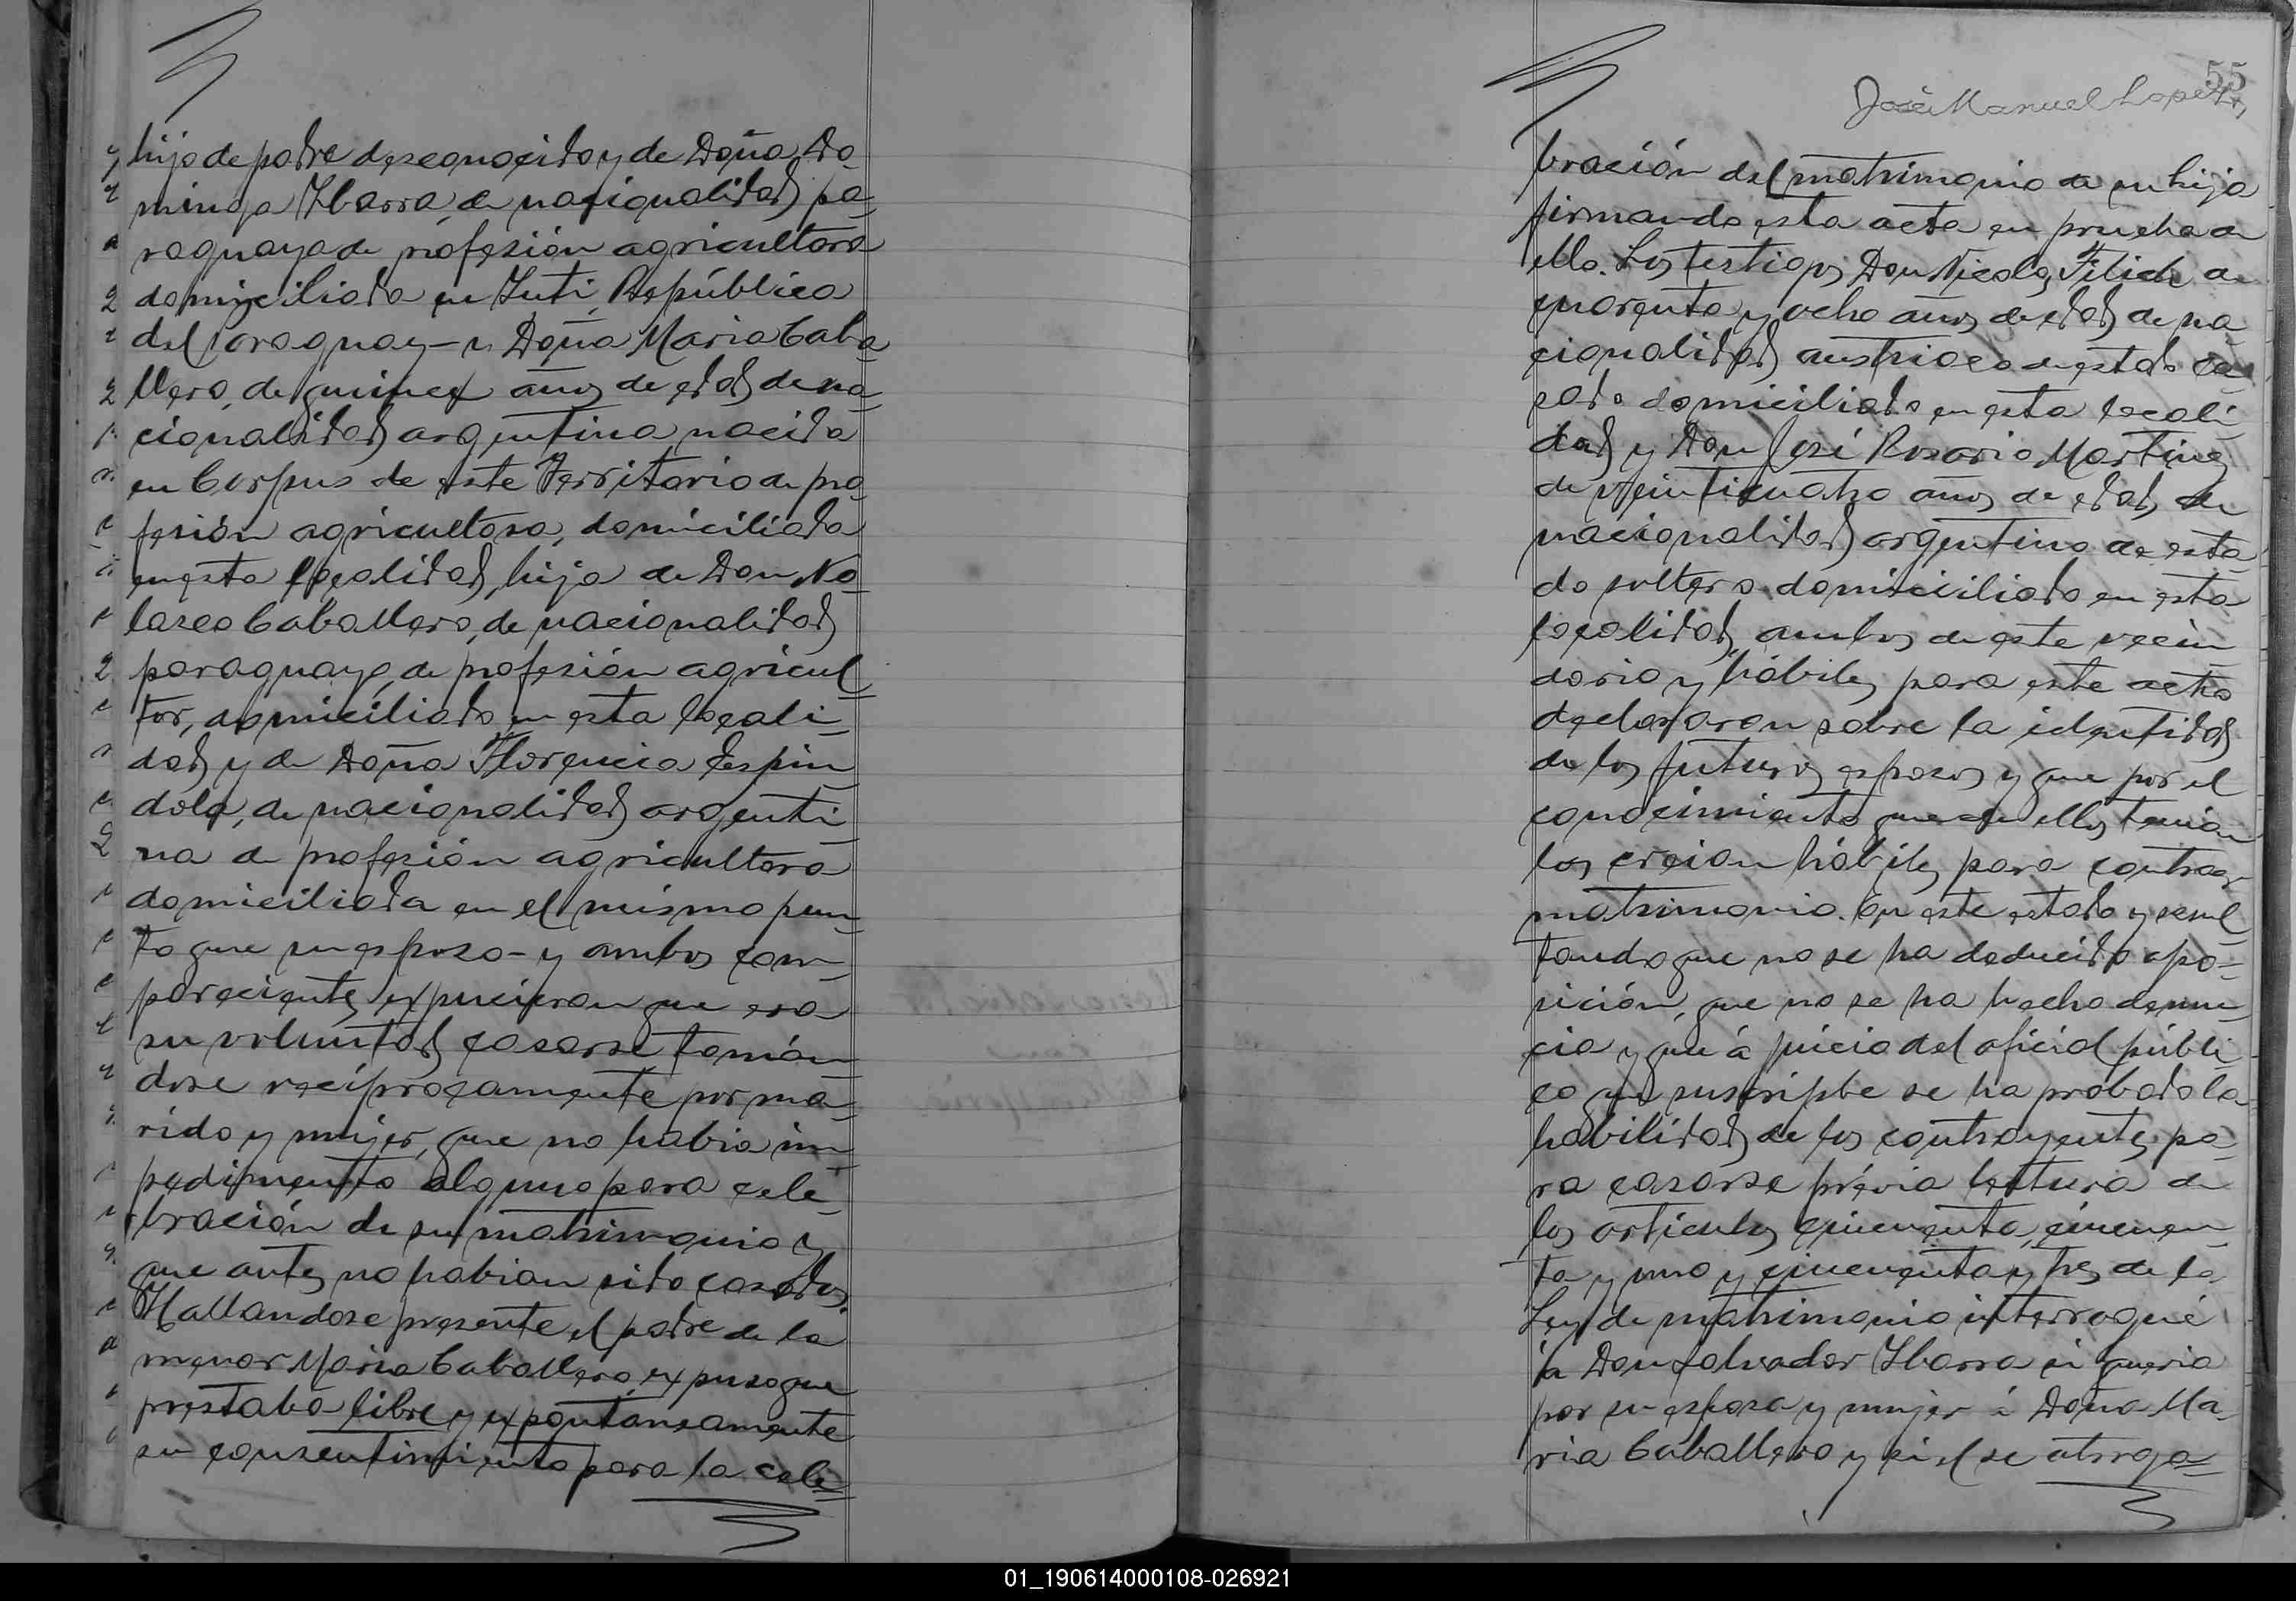 hijo de padre desconocido y de Doña Do
minga Ybarra, de nacionalidad pa
raguaya de profesión agricultora
domiciliada en Yuti, República
del Paraguay – y Doña Maria Caba
llero, de quince años de edad de na
cionalidad argentina nacida
en Corpus de este Territorio de pro
fesión agricultora, domiciliada
en esta localidad, hija de Don No
lasco Caballero, de nacionalidad
paraguayo, de profesión agricul
tor, domiciliado en esta locali
dad y de Doña Florencia Espin
dola, de nacionalidad argenti
na de profesión agricultora
domiciliada en el mismo pun
to que su esposo – y ambos com
parecientes expucieron que era
su voluntad casarse tomán
dose reciprocamente por ma
rido y mujer, que no habia im
pedimento alguno para cele
bración de su matrimonio y
que antes no habian sido casados.
Hallandose presente el padre de la
menor Maria Caballero, expuso que
prestaba libre y expontaneamente
su consentimiento para la cele
55
José Manuel Lopez
bración del matrimonio de su hija
firmando esta acta en prueba de
ello. Los testigos Don Nicolas de
cuarenta y ocho años de edad de na
cionalidad austriaco de estado ca
sado domiciliado en esta locali
dad y Don José Rosario Martinez
de veinticuatro años de edad, de
nacionalidad argentino de esta
do soltero domiciliado en esta
localidad, ambos de este vecin
dario y hábiles para este acto
declararon sobre la identidad
de los futuros esposos y que por el
conocimiento que de ellos tenian
los creian hábiles para contraer
matrimonio. En este estado y resul
tando que no se ha deducido opo
sición, que no se ha hecho denun
cia y que á juicio del oficial públi
co que suscripbe se ha probado la
habilidad de los contrayentes pa
ra casarse prévia lectura de
los articulos cincuenta, cincuen
ta y uno y cincuenta y tres de la
Ley de matrimonio interrogué
á Don Salvador Ybarra si queria
por su esposa y mujer á Doña Ma
ria Caballero y si el se otorga
01_190614000108-026921